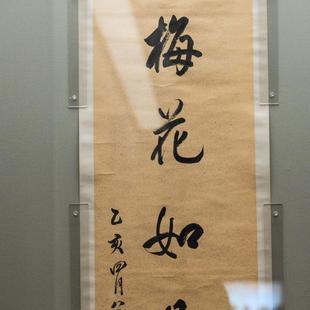 梅花如
乙亥四月